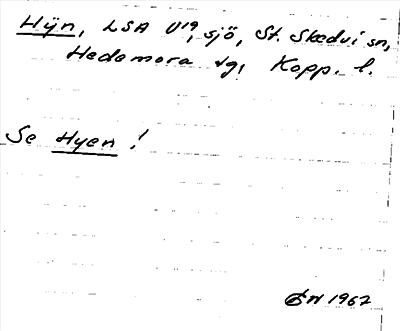 Hÿn, LSA U19, sjö, St. Skedvi sn,
Hedemora tg, Kopp. l.
Se Hyen !
ÖN 1962